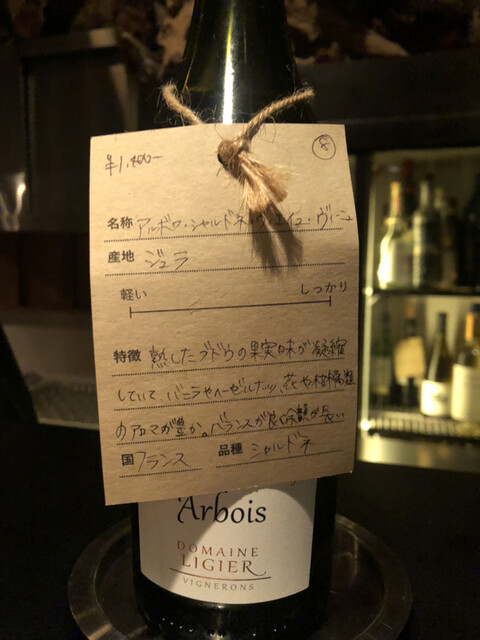 ¥1,400-
8
名称 アルボワ・シャルドネ・ヴィエイユ・ヴィーニュ
産地 ジュラ
軽い しっかり
特徴 熟したブドウの果実味が凝縮
していて、バニラやヘーゼルナッツ、花や柑橘類
のアロマが豊か。バランスが良く余韻が長い
国 フランス 品種 シャルドネ
Arbois
DOMAINE
LIGIER
VIGNERONS